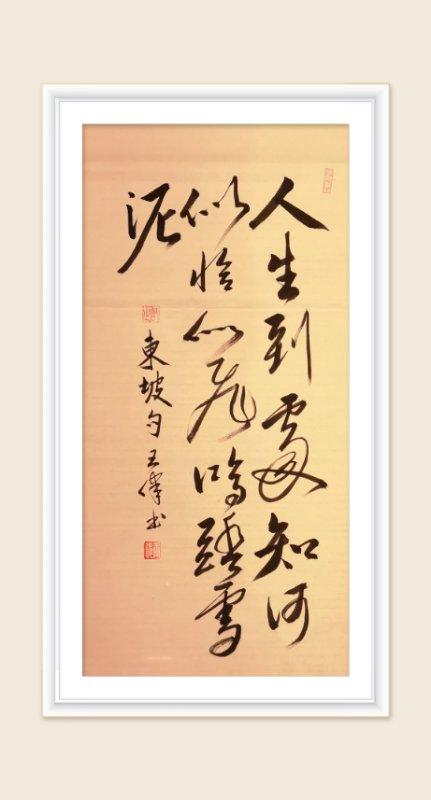 人生到處知何
似恰似飛鴻踏雪
泥
東坡句王偉书